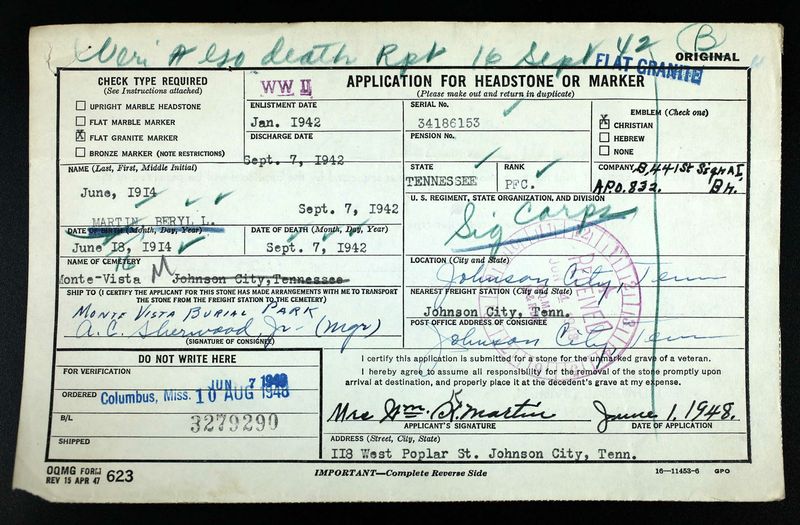 Veri Also death Rpt 16 Sept 42 (B)
ORIGINAL
FLAT GRANITE
CHECK TYPE REQUIRED
(See Instructions attached)
UPRIGHT MARBLE HEADSTONE
FLAT MARBLE MARKER
X FLAT GRANITE MARKER
BRONZE MARKER (NOTE RESTRICTIONS)
WW II
APPLICATION FOR HEADSTONE OR MARKER
(Please make out and return in duplicate)
ENLISTMENT DATE
Jan. 1942
DISCHARGE DATE
Sept. 7, 1942
SERIAL No.
34186153
PENSION No.
EMBLEM (Check one)
X CHRISTIAN
HEBREW
NONE
NAME (Last, First, Middle Initial)
June, 1914
Sept. 7, 1942
MARTIN BERYL L.
STATE
TENNESSEE
RANK
PFC.
COMPANY B, 441 St Signal,
APO. 832. Bn.
U. S. REGIMENT, STATE ORGANIZATION, AND DIVISION
Sig Corps
DATE OF BIRTH (Month, Day, Year)
June 18, 1914
16
DATE OF DEATH (Month, Day, Year)
Sept. 7, 1942
NAME OF CEMETERY
Monte-Vista M Johnson City, Tennessee
LOCATION (City and State)
Johnson City, Tenn
SHIP TO (I CERTIFY THE APPLICANT FOR THIS STONE HAS MADE ARRANGEMENTS WITH ME TO TRANSPORT
THE STONE FROM THE FREIGHT STATION TO THE CEMETERY)
MONTE VISTA BURIAL PARK
A. C. Sherwood, Jr - (Mgr)
(SIGNATURE OF CONSIGNEE)
NEAREST FREIGHT STATION (City and State)
Johnson City, Tenn.
POST OFFICE ADDRESS OF CONSIGNEE
Johnson City, Tenn
RECEIVED
DO NOT WRITE HERE
FOR VERIFICATION
JUN 7 1948
ORDERED Columbus, Miss. 10 AUG 1948
B/L
3279290
SHIPPED
I certify this application is submitted for a stone for the unmarked grave of a veteran.
I hereby agree to assume all responsibility for the removal of the stone promptly upon
arrival at destination, and properly place it at the decedent's grave at my expense.
Mrs Wm. K. Martin June 1, 1948.
APPLICANT'S SIGNATURE DATE OF APPLICATION
ADDRESS (Street, City, State)
118 West Poplar St. Johnson City, Tenn.
OQMG FORM
REV 15 APR 47 623
IMPORTANT—Complete Reverse Side
16—11453-6 GPO